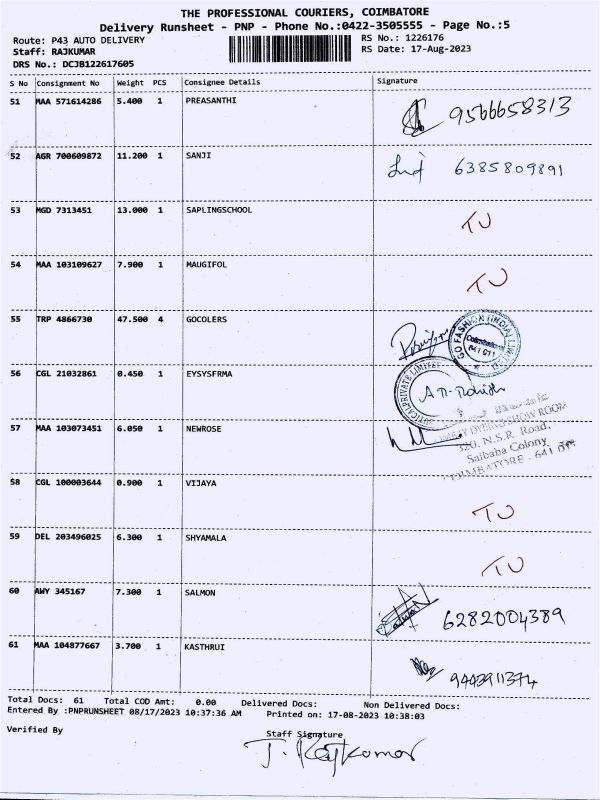 THE PROFESSIONAL COURIERS, COIMBATORE
Delivery Runsheet - PNP - Phone No.:0422-3505555 - Page No.:5
Route: P43 AUTO DELIVERY RS No.: 1226176
Staff: RAJKUMAR RS Date: 17-Aug-2023
DRS No.: DCJB122617605
S No Consignment No Weight PCS Consignee Details Signature
51 MAA 571614286 5.400 1 PREASANTHI 9566658313
52 AGR 700609872 11.200 1 SANJI 6385809891
53 MGD 7313451 13.000 1 SAPLINGSCHOOL TU
54 MAA 103109627 7.900 1 MAUGIFOL TU
55 TRP 4866730 47.500 4 GOCOLERS
GO FASHION (INDIA) LIMITED
Coimbatore
641 011
56 CGL 21032861 0.450 1 EYSYSFRMA
PRIVATE LIMITED
57 MAA 103073451 6.050 1 NEWROSE
DYEING SHOW ROOM
320, N.S.R. Road,
Saibaba Colony
COIMBATORE - 641 011
58 CGL 100003644 0.900 1 VIJAYA TU
59 DEL 203496025 6.300 1 SHYAMALA TU
60 AWY 345167 7.300 1 SALMON 6282004389
61 MAA 104877667 3.700 1 KASTHRUI 9443911374
Total Docs: 61 Total COD Amt: 0.00 Delivered Docs: Non Delivered Docs:
Entered By :PNPRUNSHEET 08/17/2023 10:37:36 AM Printed on: 17-08-2023 10:38:03
Verified By Staff Signature
T. Rajkumar